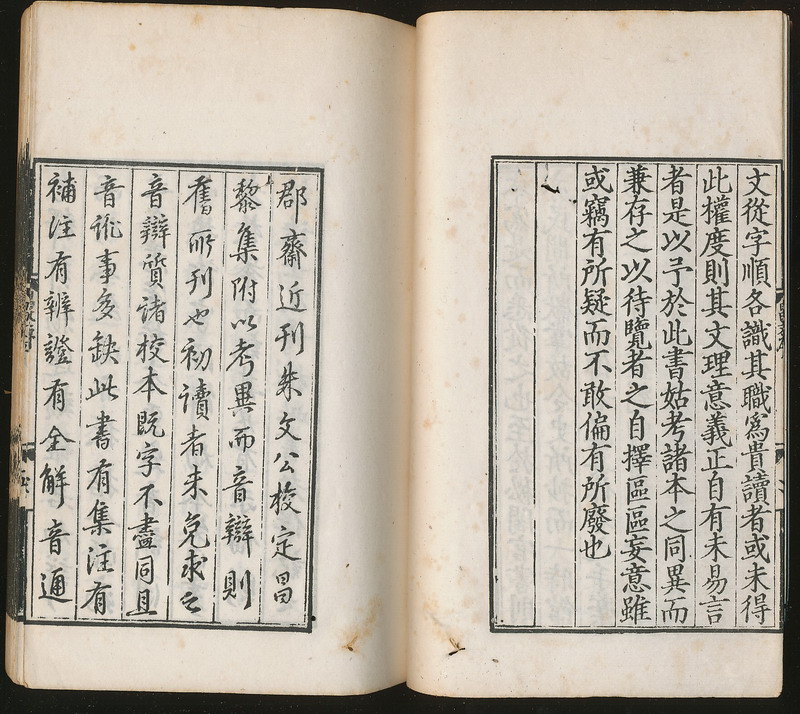 文從字順各識其職爲貴讀者或未得
此權度則其文理意義正自有未易言
者是以予於此書姑考諸本之同異而
兼存之以待覽者之自擇區區妄意雖
或竊有所疑而不敢偏有所廢也
郡齋近刊朱文公校定昌
黎集附以考異而音辯則
舊所刊也初讀者未免求之
音辯質諸校本既字不盡同且
音訛事多缺此書有集注有
補注有辨證有全解音通